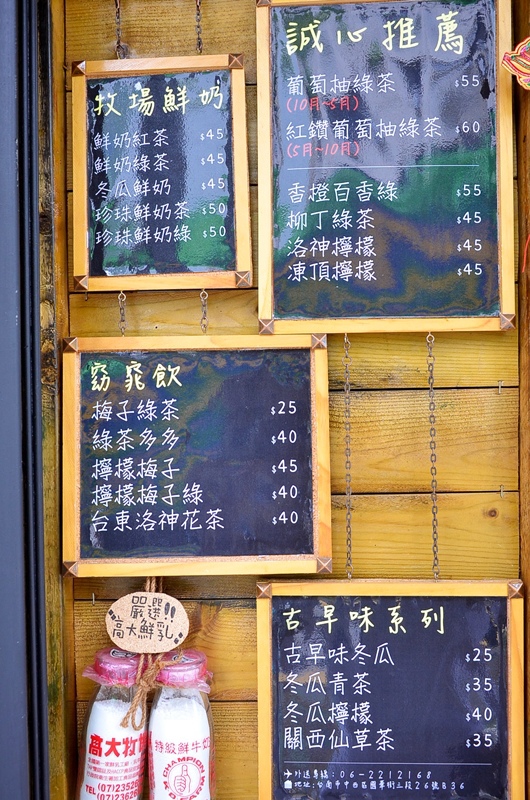 牧場鮮奶
鮮奶紅茶 $45
鮮奶綠茶 $45
冬瓜鮮奶 $45
珍珠鮮奶茶 $50
珍珠鮮奶綠 $50
誠心推薦
葡萄柚綠茶 $55
(10月~5月)
紅鑽葡萄柚綠茶 $60
(5月~10月)
香橙百香綠 $55
柳丁綠茶 $45
洛神檸檬 $45
凍頂檸檬 $45
窈窕飲
梅子綠茶 $25
綠茶多多 $40
檸檬梅子 $45
檸檬梅子綠 $40
台東洛神花茶 $40
嚴選!!
高大鮮乳
高大牧
TEL (07)2352
(07)2362
特級鮮牛奶
CHAMPION
古早味系列
古早味冬瓜 $25
冬瓜青茶 $35
冬瓜檸檬 $40
關西仙草茶 $35
外送專線:06-2212168
地址:台南市中西區國華街三段226號B36